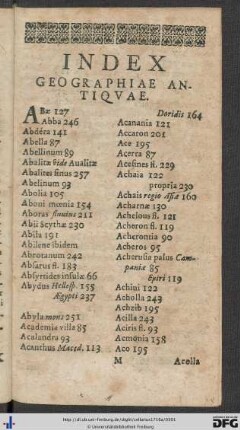 INDEX
GEOGRAPHIAE AN-
TIQVAE.
ABæ 127
Abba 246
Abdéra 141
Abella 87
Abellinum 89
Abalitæ vide Aualitæ
Abalites sinus 257
Abelinum 93
Abolia 105
Aboni mœnia 154
Aboras fluuius 211
Abii Scythæ 230
Abila 191
Abilene ibidem
Abrotanum 242
Absarus fl. 183
Absyrtides insulæ 66
Abydus Hellesp. 155
Ægypti 237
Abyla mons 251
Academia villa 85
Acalandra 93
Acanthus Maced. 113
Doridis 164
Acanania 121
Accaron 201
Ace 195
Acerra 87
Acesines fl. 229
Achaia 122
propria 230
Achais regio Asiæ 160
Acharnæ 130
Achelous fl. 121
Acheron fl. 119
Acherontia 90
Acheros 95
Acherusia palus Cam-
paniæ 85
Epiri 119
Achini 122
Acholla 243
Achzib 195
Acilla 243
Aciris fl. 93
Acmonia 158
Aco 195
M
Acolla
http://dl.ub.uni-freiburg.de/diglit/cellarius1710a/0593
© Universitätsbibliothek Freiburg
DFG